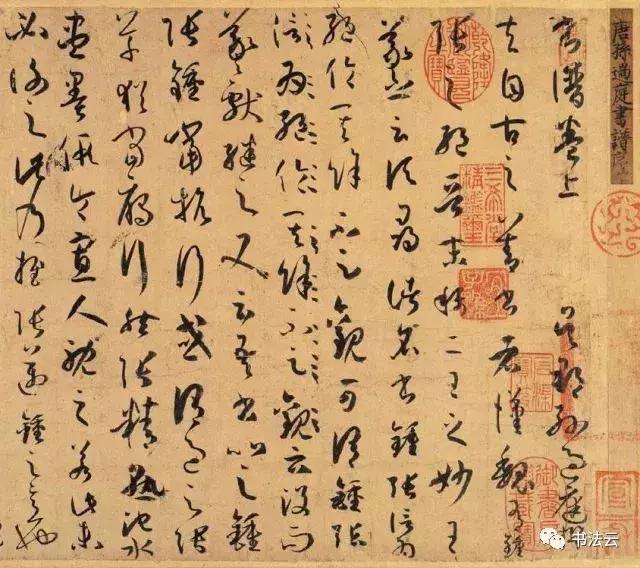 唐孫過庭書譜序
書譜卷上 吳郡孫過庭撰
夫自古之善書者漢魏有鍾
張之絕晉末稱二王之妙王
羲之云頃尋諸名書鍾張信為
絕倫其餘不足觀可謂鍾張
信為絕倫其餘不足觀云沒而
羲獻繼之又云吾書比之鍾
張鍾當抗行或謂過之張
草猶當雁行然張精熟池水
盡墨假令寡人耽之若此未
必謝之此乃推張邁鍾之意也
三希堂精鑑璽
宜子孫
书法云